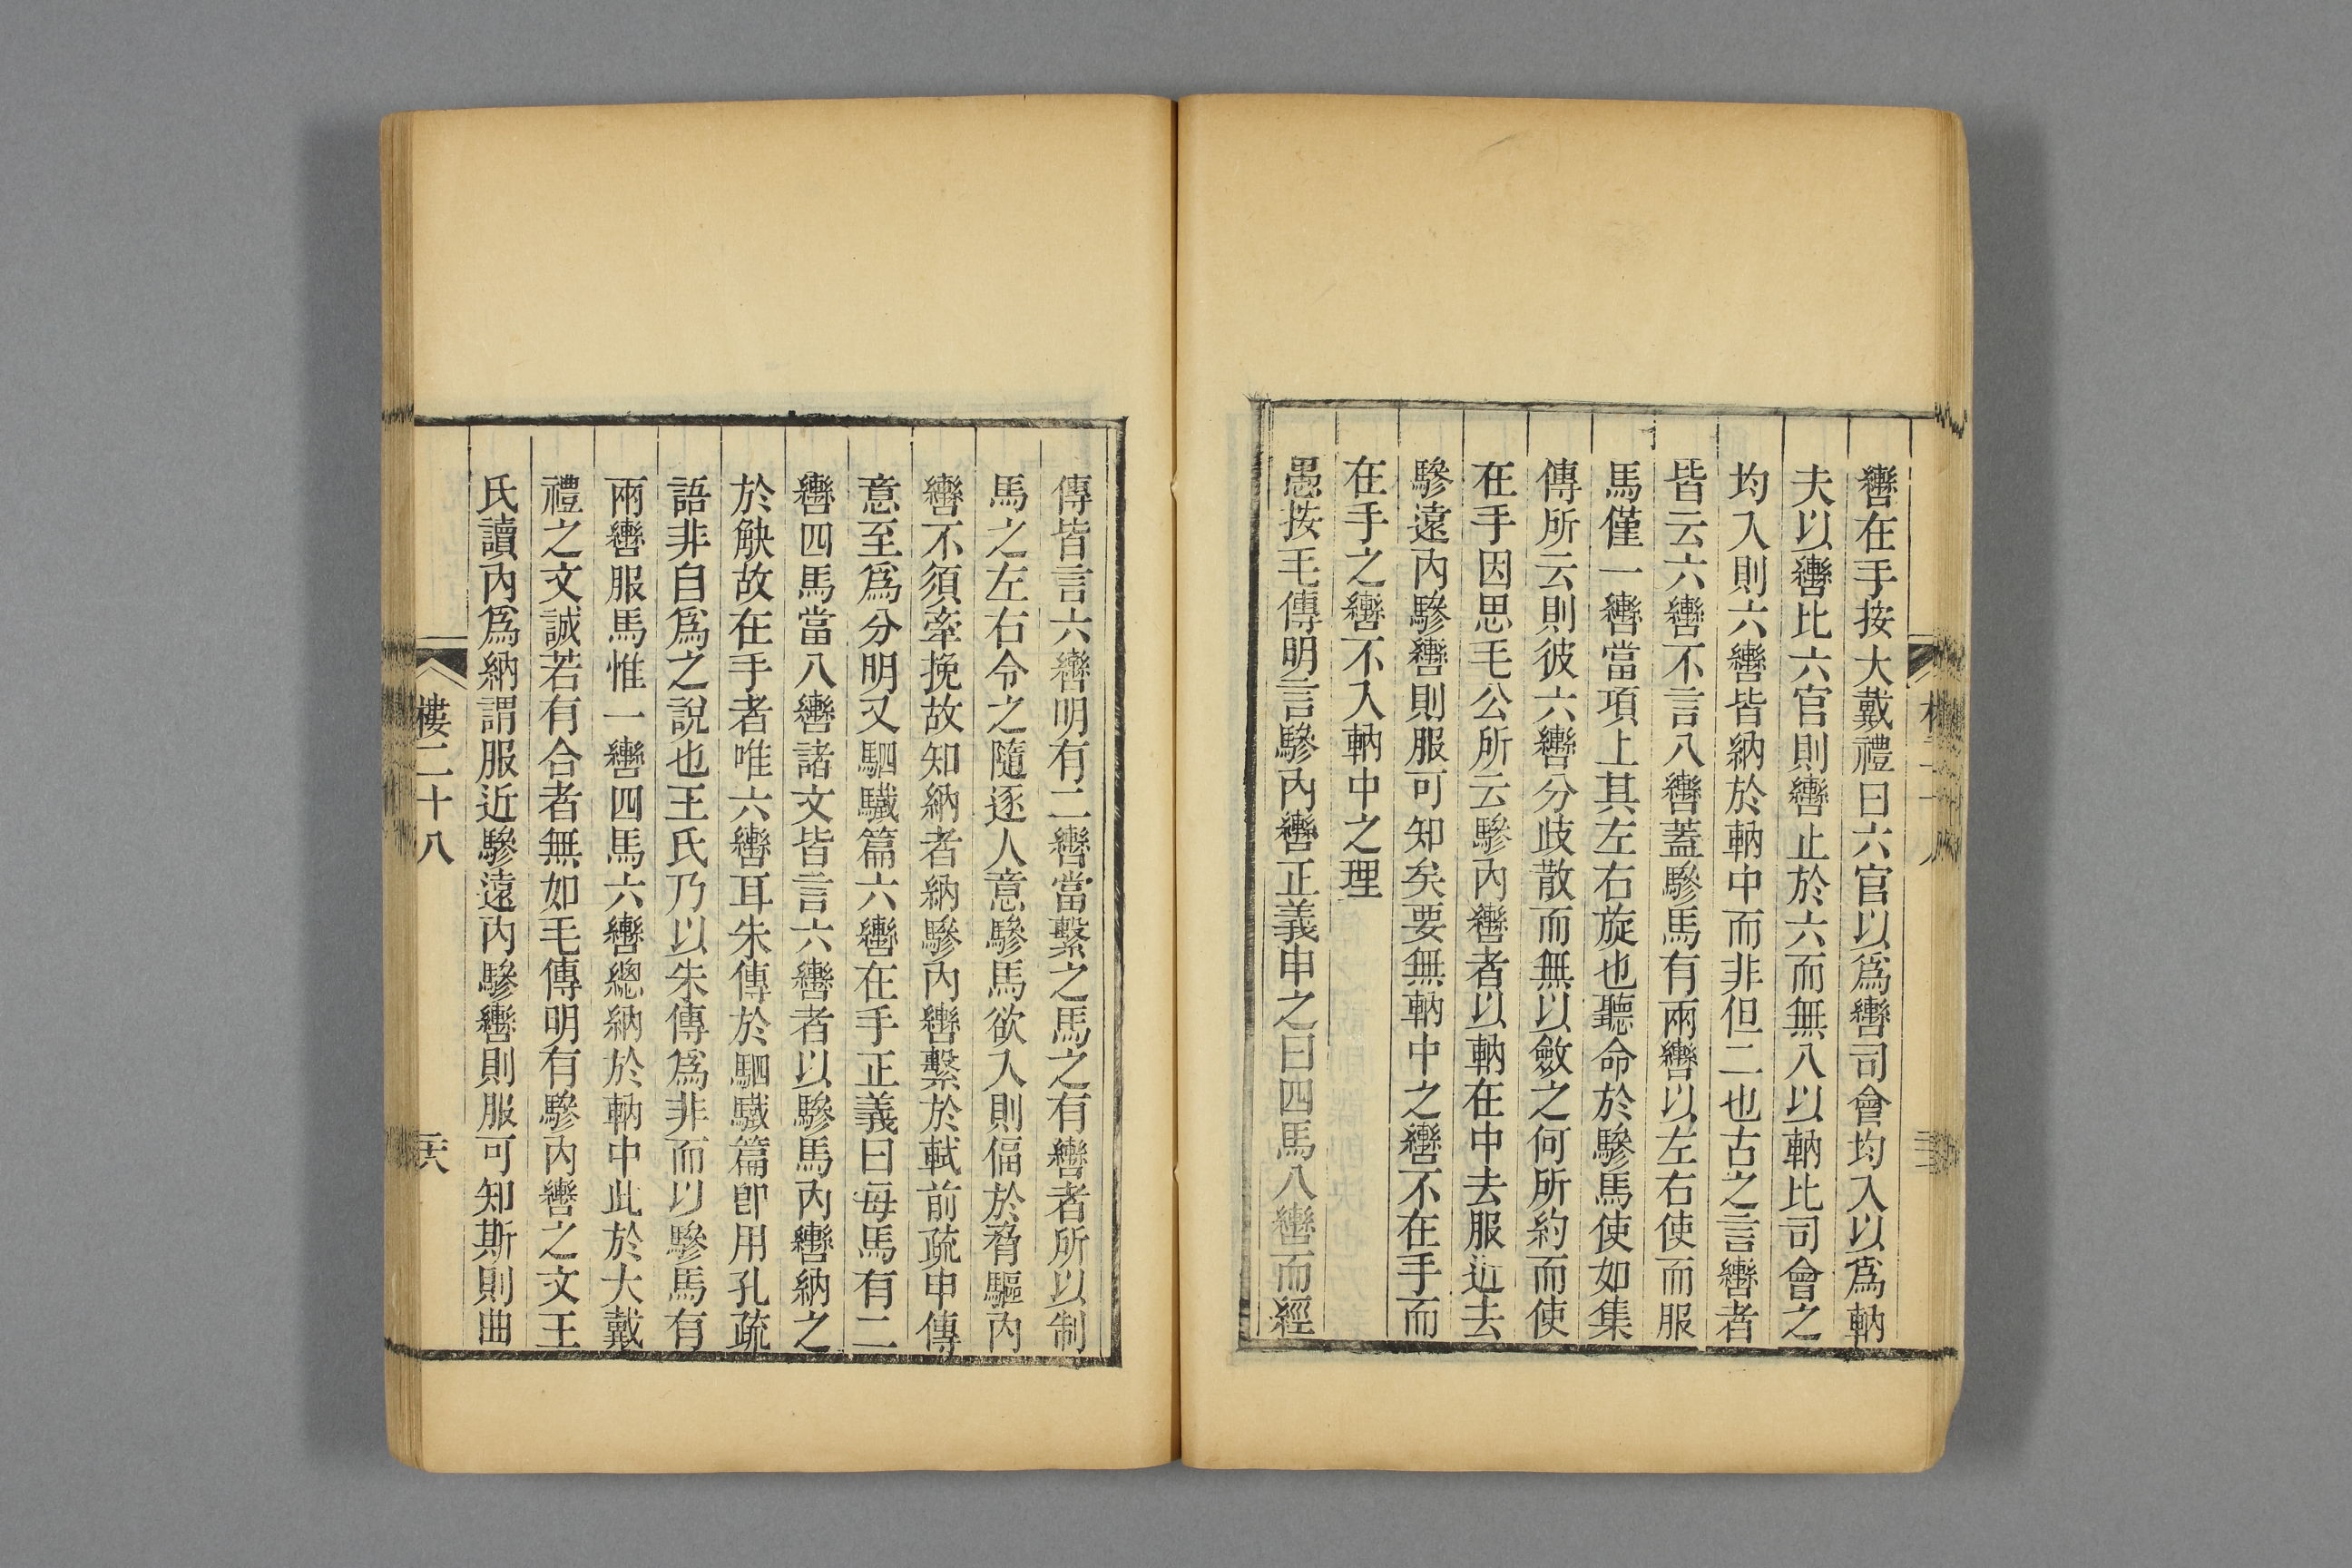 轡在手按大戴禮曰六官以爲轡司會均入以爲軜
夫以轡比六官則轡止於六而無八以軜比司會之
均入則六轡皆納於軜中而非但二也古之言轡者
皆云六轡不言八轡蓋驂馬有兩轡以左右使而服
馬僅一轡當項上其左右旋也聽命於驂馬使如集
傳所云則彼六轡分歧散而無以斂之何所約而使
在手因思毛公所云驂內轡者以軜在中去服近去
驂遠內驂轡則服可知矣要無軜中之轡不在手而
在手之轡不入軜中之理
愚按毛傳明言驂內轡正義申之曰四馬八轡而經
傳皆言六轡明有二轡當繫之馬之有轡者所以制
馬之左右令之隨逐人意驂馬欲入則偪於脅驅內
轡不須牽挽故知納者納驂內轡繫於軾前疏申傳
意至爲分明又駟驖篇六轡在手正義曰每馬有二
轡四馬當八轡諸文皆言六轡者以驂馬內轡納之
於觖故在手者唯六轡耳朱傳於駟驖篇卽用孔疏
語非自爲之說也王氏乃以朱傳爲非而以驂馬有
兩轡服馬惟一轡四馬六轡總納於軜中此於大戴
禮之文誠若有合者無如毛傳明有驂內轡之文王
氏讀內爲納謂服近驂遠內驂轡則服可知斯則曲
樓二十八